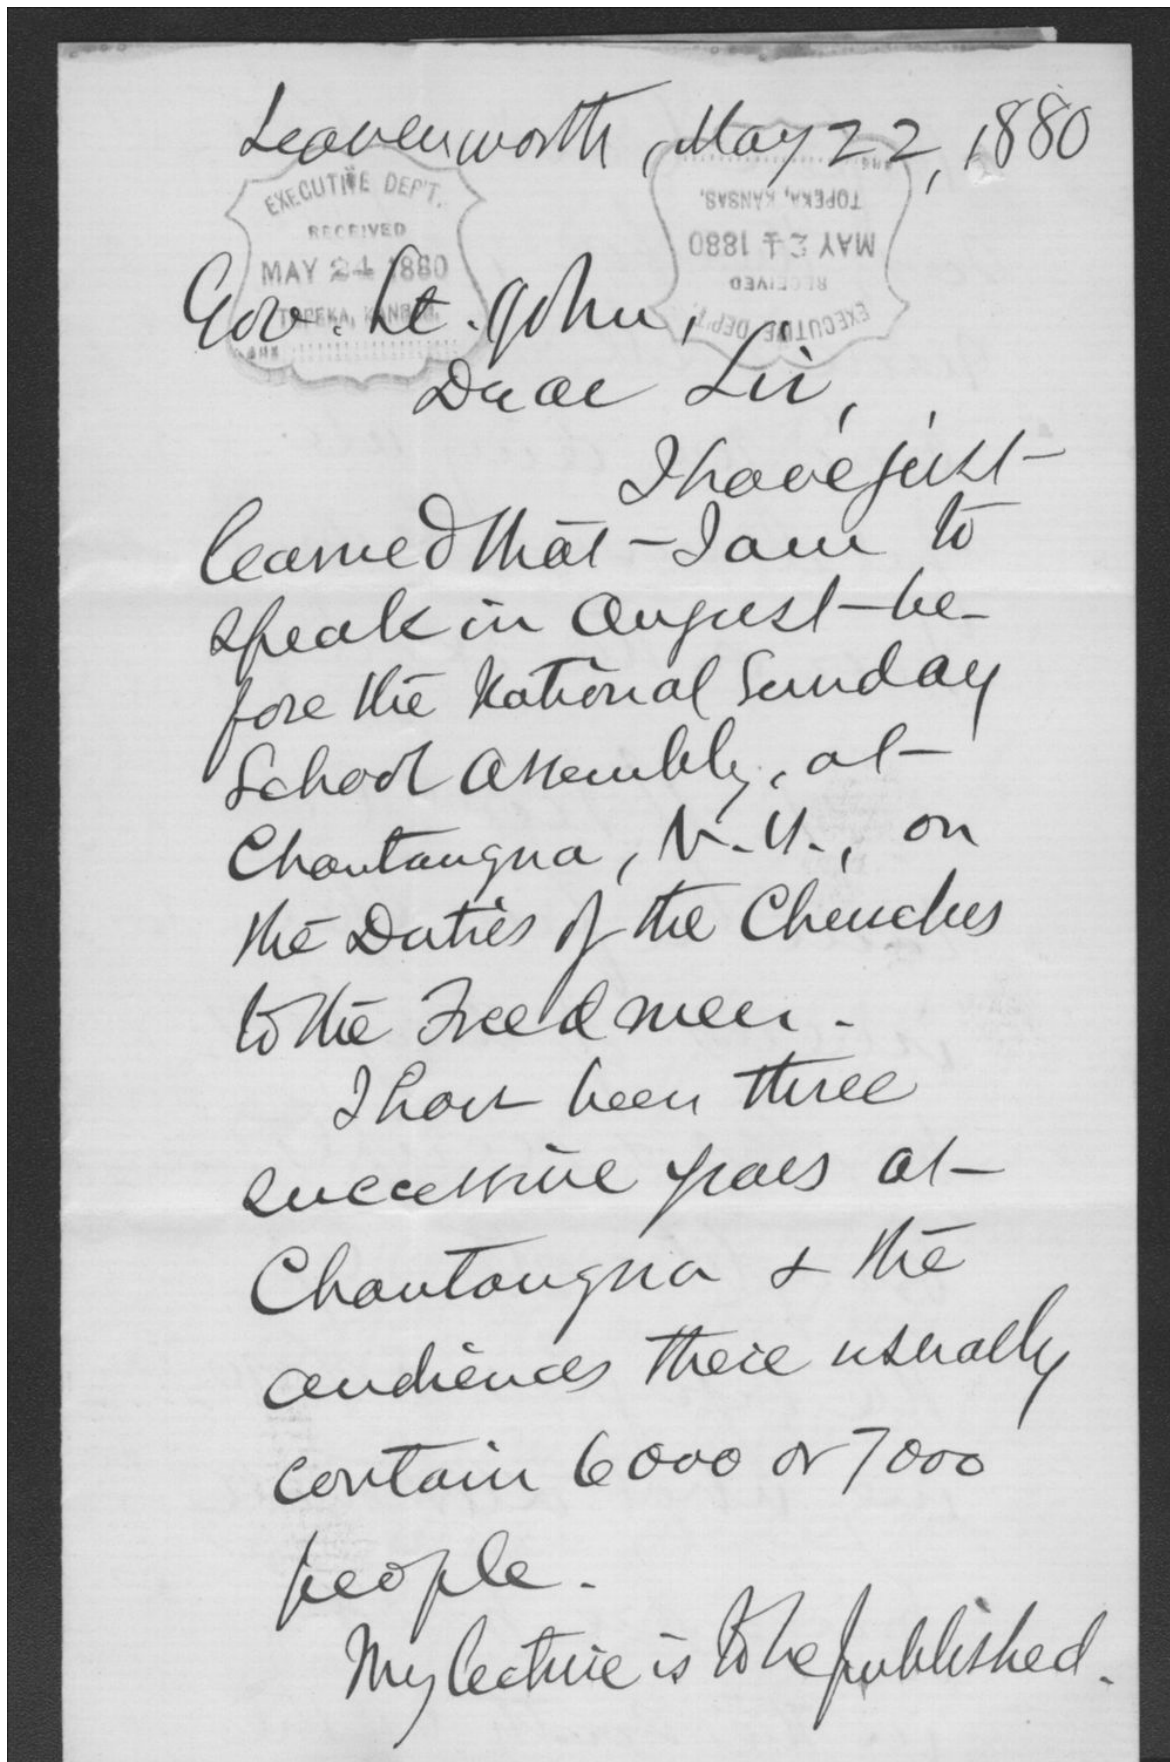 Leavenworth, May 22, 1880
EXECUTIVE DEP'T.
RECEIVED
MAY 24 1880
TOPEKA, KANSAS.
EXECUTIVE DEP'T.
RECEIVED
MAY 24 1880
TOPEKA, KANSAS.
Gov. St. John,
Dear Sir,
I have just
learned that I am to
speak in August be-
fore the National Sunday
School Assembly, at
Chautauqua, N.Y., on
the Duties of the Churches
to the Freedmen.
I have been three
successive years at
Chautauqua & the
audiences there usually
contain 6000 or 7000
people.
My lecture is to be published.